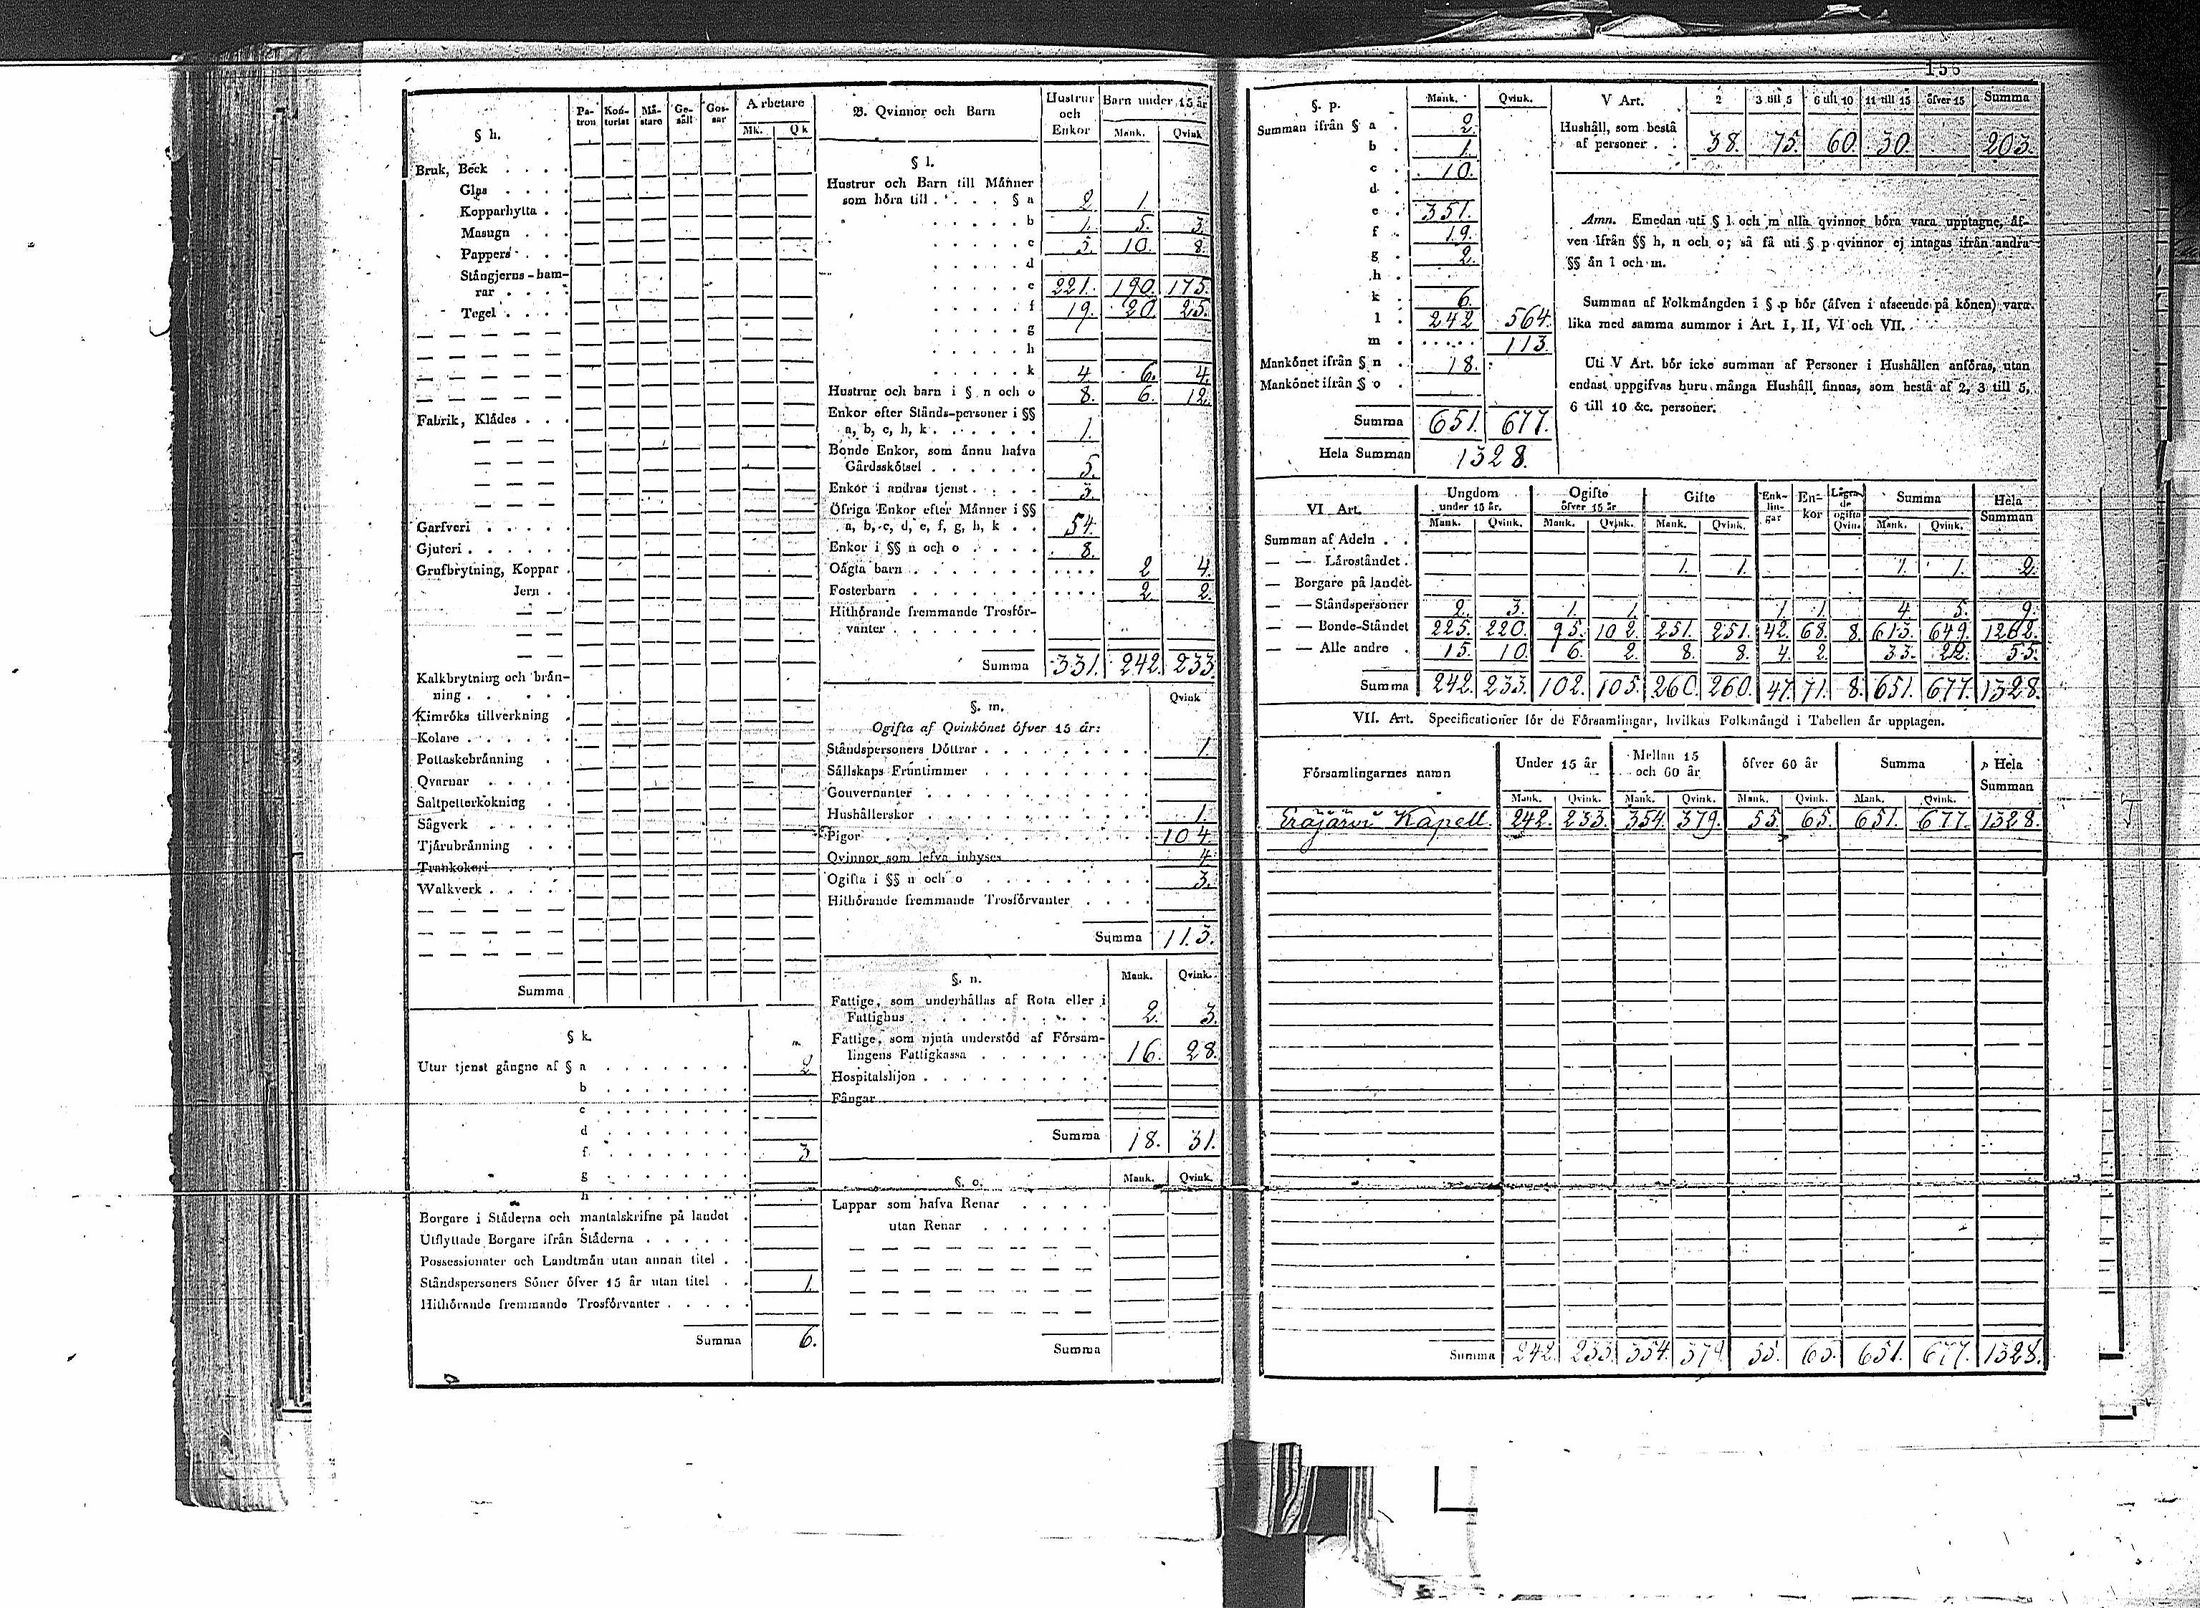 155
§ h.
Pa-
tron
Kon-
torist
Mä-
stare
Ge-
säll
Gos-
sar
Arbetare
Mk.
Qk
Bruk, Beck . . . .
Glas . . . .
Kopparhytta . .
Masugn . . .
Pappers . . .
Stångjerns-ham-
rar . . . .
Tegel . . . .
Fabrik, Klådes . . .
Garfveri . . . . .
Gjuteri . . . . . .
Grufbrytning, Koppar .
Jern . .
Kalkbrytning och brän-
ning . . . . . .
Kimröks tillverkning .
Kolare . . . . . .
Pottaskebränning . .
Qvarnar . . . . .
Saltpetterkokning . .
Sågverk . . . . .
Tjärubränning . . .
Trankokeri
Walkverk . . . . .
Summa
§ k.
Utur tjenst gångne af § a . . . . . . . . 2
b . . . . . . .
c . . . . . . .
d . . . . . . .
f . . . . . . . 3
g . . . . . . .
h . . . . . . .
Borgare i Städerna och mantalskrifne på landet .
Utflyttade Borgare ifrån Städerna . . . . . .
Possessionater och Landtmän utan annan titel . .
Ståndspersoners Söner öfver 15 år utan titel . . 1.
Hithörande fremmande Trosförvanter . . . . .
Summa 6.
B. Qvinnor och Barn
Hustrur
och
Enkor
Barn under 15 år
Mank. Qvink
§ l.
Hustrur och Barn till Männer
som höra till . . . . . § a 2 1.
b 1. 5. 3.
c 3. 10. 8.
d
e 221. 190. 175.
f 19. 20. 25.
g
h
k 4. 6. 4.
Hustrur och barn i § n och o 8. 6. 12.
Enkor efter Stånds-personer i §§
a, b, c, h, k . . . . . . 1.
Bonde Enkor, som ännu hafva
Gårdsskötsel . . . . . . 5.
Enkor i andras tjenst . . . . 3.
Öfriga Enkor efter Männer i §§
a, b, c, d, e, f, g, h, k . . 54.
Enkor i §§ n och o . . . . 8.
Oägta barn . . . . . . . . . . . 2. 4.
Fosterbarn . . . . . . . . . . . 2. 2.
Hithörande fremmande Trosför-
vanter . . . . . . .
Summa 331. 242. 233.
§. m.
Qvink
Ogifta af Qvinkönet öfver 15 år:
Ståndspersoners Döttrar . . . . . . . . . 1.
Sällskaps Fruntimmer . . . . . . . . .
Gouvernanter . . . . . . . . . . . .
Hushållerskor . . . . . . . . . . . . 1.
Pigor . . . . . . . . . . . . . . . 104.
Qvinnor som lefva inhyses 4.
Ogifta i §§ n och o . . . . . . . . . 3.
Hithörande fremmande Trosförvanter . . . .
Summa 113.
§. n.
Mank. Qvink.
Fattige, som underhållas af Rota eller i
Fattighus . . . . . . . . . . 2. 3.
Fattige, som njuta understöd af Försam-
lingens Fattigkassa . . . . . . . 16. 28.
Hospitalshjon . . . . . . . . . .
Fångar
Summa 18. 31.
§. o.
Mank. Qvink.
Lappar som hafva Renar . . . . .
utan Renar . . . . . . .
Summa
§. p.
Mank. Qvink.
Summan ifrån § a . 2.
b . 1.
c . 10.
d .
e . 351.
f . 19.
g . 2.
h .
k . 6.
l . 242 564.
m . . . . . . 113.
Mankönet ifrån § n . 18.
Mankönet ifrån § o .
Summa 651. 677.
Hela Summan 1328.
V Art.
2 3 till 5 6 till 10 11 till 15 öfver 15 Summa
Hushåll, som bestå
af personer . . 38. 75. 60. 30. 203.
Anm. Emedan uti § l och m alla qvinnor böra vara upptagne, äf-
ven ifrån §§ h, n och o; så få uti § p qvinnor ej intagas ifrån andra
§§ än l och m.
Summan af Folkmängden i § p bör (äfven i afseende på könen) vara
lika med samma summor i Art. I, II, VI och VII.
Uti V Art. bör icke summan af Personer i Hushållen anföras, utan
endast uppgifvas huru många Hushåll finnas, som bestå af 2, 3 till 5,
6 till 10 &c. personer.
VI Art.
Ungdom
under 15 år.
Ogifte
öfver 15 år
Gifte
Enk-
lin-
gar
En-
kor
Lägra-
de
ogifta
Qvin.
Summa
Hela
Summan
Mank. Qvink. Mank. Qvink. Mank. Qvink. Mank. Qvink.
Summan af Adeln . .
— — Läroståndet . 1. 1. 1. 1. 2.
— Borgare på landet
— — Ståndspersoner 2. 3. 1. 1. 1. 1. 4. 5. 9.
— — Bonde-Ståndet 225. 220. 95. 102. 251. 251. 42. 68. 8. 613. 649. 1262.
— — Alle andre . 15. 10. 6. 2. 8. 8. 4. 2. 33. 22. 55.
Summa 242. 233. 102. 105. 260. 260. 47. 71. 8. 651. 677. 1328.
VII. Art. Specificationer för de Församlingar, hvilkas Folkmängd i Tabellen är upptagen.
Församlingarnes namn
Under 15 år
Mellan 15
och 60 år
öfver 60 år
Summa
Hela
Summan
Mank. Qvink. Mank. Qvink. Mank. Qvink. Mank. Qvink.
Eräjärvi Kapell. 242. 233. 354. 379. 55. 65. 651. 677. 1328.
Summa 242. 233. 354. 379. 55. 65. 651. 677. 1328.